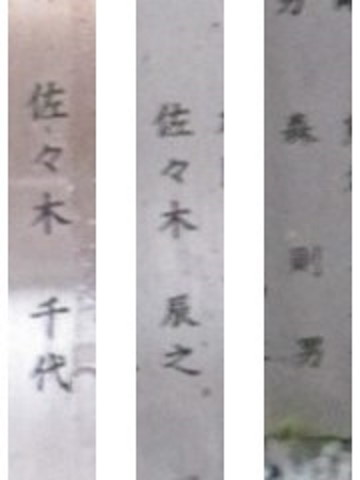 佐々木 千代
佐々木 辰之
森 則男